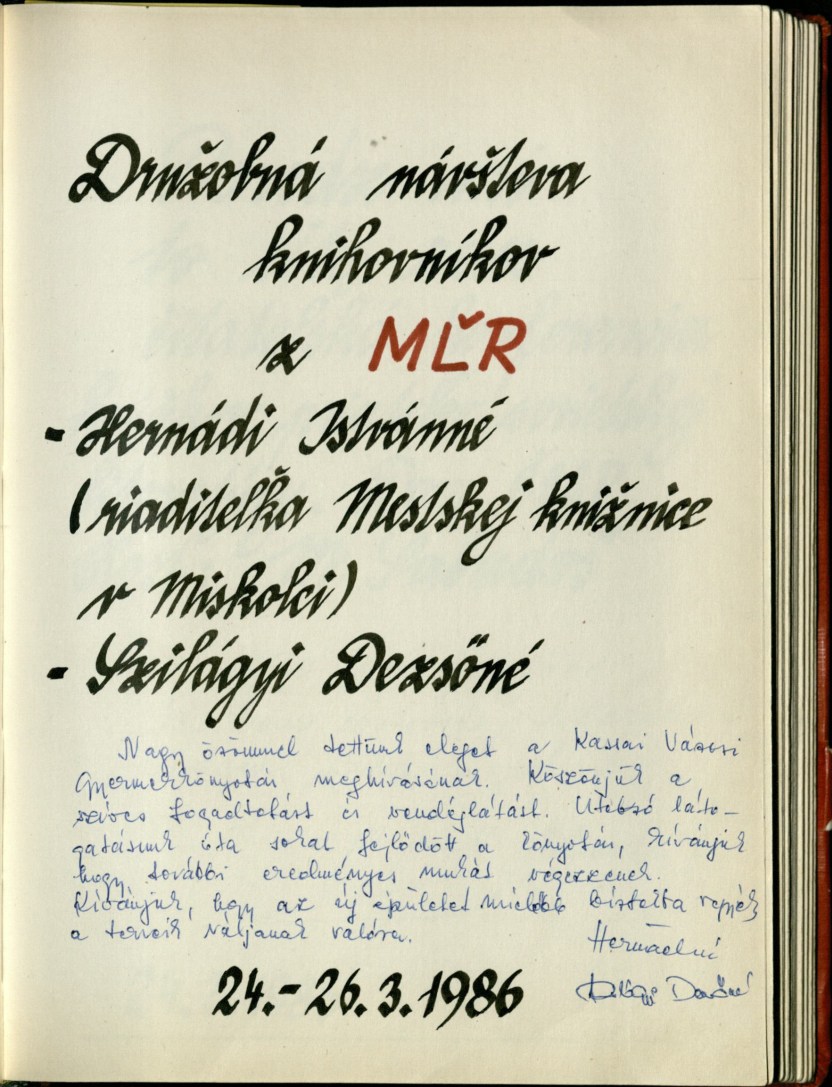 Družobná návšteva
knihovníkov
z MĽR
- Hernádi Istvánné
(riaditeľka Mestskej knižnice
v Miskolci)
- Szilágyi Dezsöné
Nagy örömmel tettünk eleget a Kassai Városi
Gyermekkönyvtár meghívásának. Köszönjük a
szíves fogadtatást és vendéglátást. Utolsó láto-
gatásunk óta sokat fejlődött a könyvtár, kívánjuk
hogy további eredményes munkát végezzenek.
Kívánjuk, hogy az új épületet mielőbb birtokba vegyék
a terveik váljanak valóra.
Hernádiné
Szilágyi Dezsőné
24.-26.3.1986